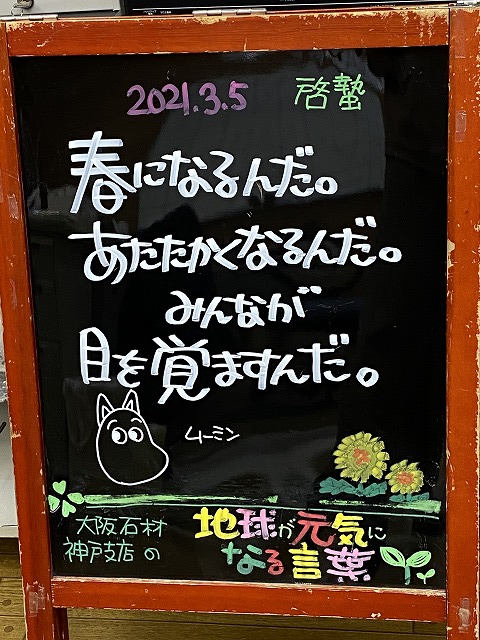 2021.3.5 啓蟄
春になるんだ。
あたたかくなるんだ。
みんなが
目を覚ますんだ。
ムーミン
大阪石材
神戸支店の
地球が元気に
なる言葉